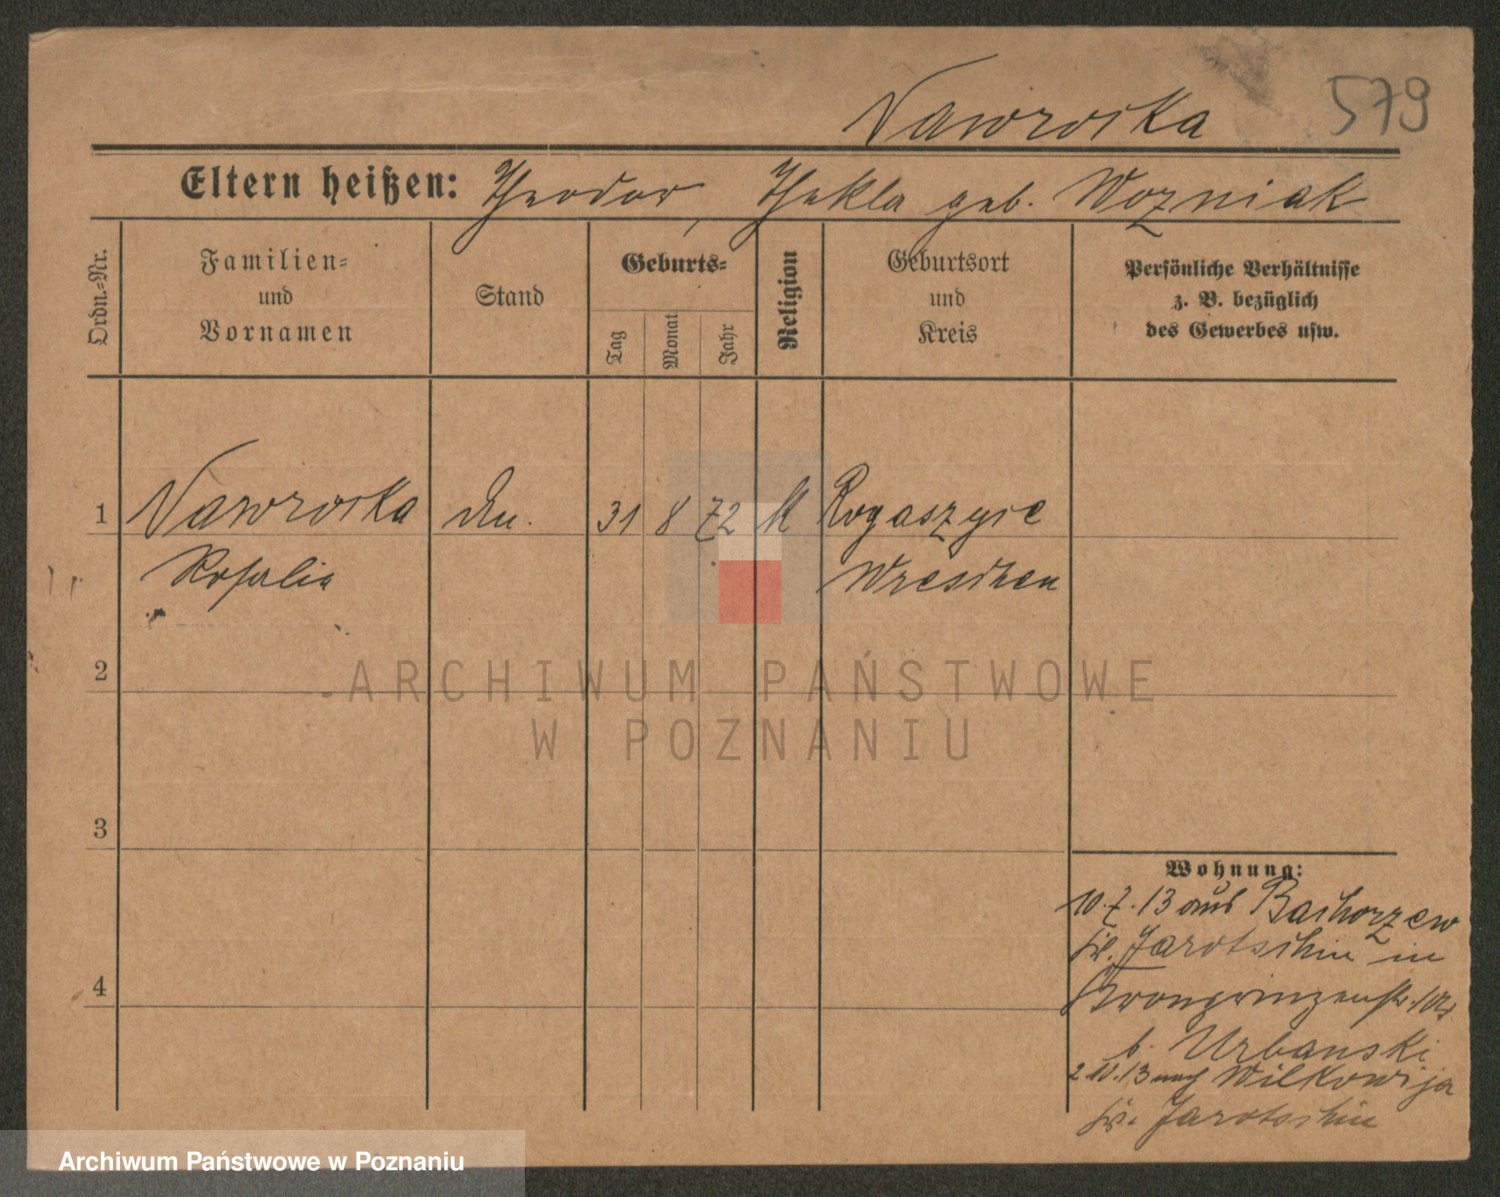 Nawrocka 579
Eltern heißen: Theodor, Thekla geb. Wozniak
Ordn.-Nr.
Familien-
und
Vornamen
Stand
Geburts-
Tag
Monat
Jahr
Religion
Geburtsort
und
Kreis
Persönliche Verhältnisse
z. B. bezüglich
des Gewerbes usw.
1 Nawrocka 31 8 72 k Rogaszyce
Rosalie Wreschen
2
3
4
Wohnung:
10.7.13 aus Bachorzew
Kr. Jarotschin in
Kronprinzenstr.
b. Urbanski
2.10.13 nach Wilkowija
Kr. Jarotschin
ARCHIWUM PAŃSTWOWE
W POZNANIU
Archiwum Państwowe w Poznaniu